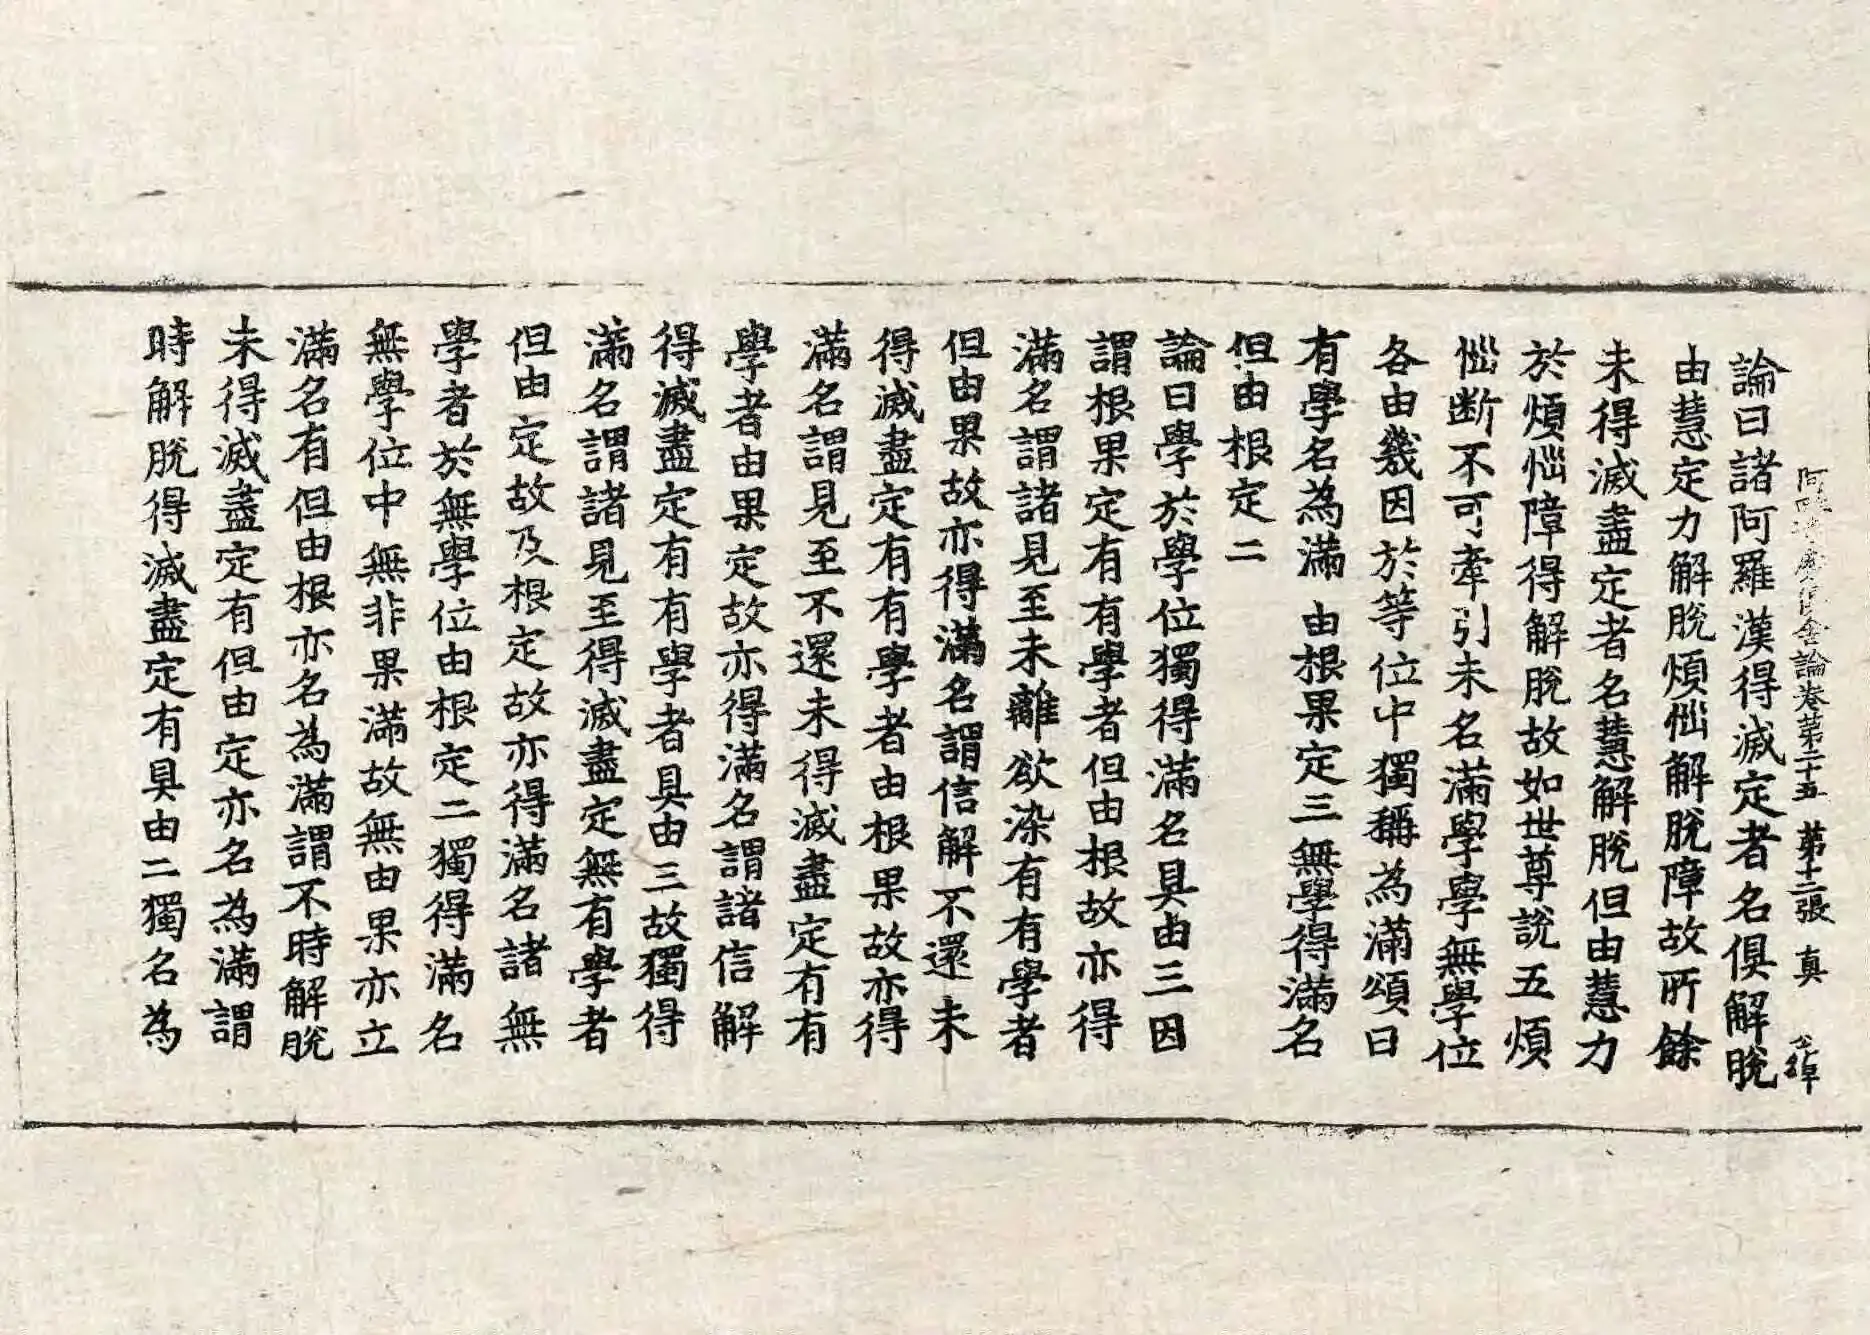 阿毗達磨俱舍論卷第二十五 第十二張 真
論曰諸阿羅漢得滅定者名俱解脫
由慧定力解脫煩惱解脫障故所餘
未得滅盡定者名慧解脫但由慧力
於煩惱障得解脫故如世尊說五煩
惱斷不可牽引未名滿學學無學位
各由幾因於等位中獨稱為滿頌曰
有學名為滿 由根果定三無學得滿名
但由根定二
論曰學於學位獨得滿名具由三因
謂根果定有有學者但由根故亦得
滿名謂諸見至未離欲染有有學者
但由果故亦得滿名謂信解不還未
得滅盡定有有學者由根果故亦得
滿名謂見至不還未得滅盡定有有
學者由果定故亦得滿名謂諸信解
得滅盡定有有學者具由三故獨得
滿名謂諸見至得滅盡定無有學者
但由定故及根定故亦得滿名諸無
學者於無學位由根定二獨得滿名
無學位中無非果滿故無由果亦立
滿名有但由根亦名為滿謂不時解脫
未得滅盡定有但由定亦名為滿謂
時解脫得滅盡定有具由二獨名為